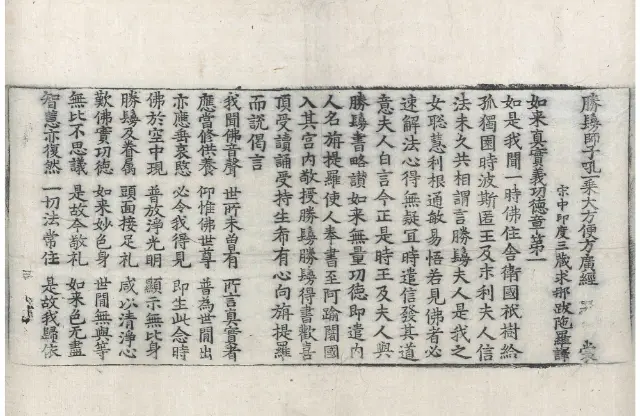 勝鬘師子吼一乗大方便方廣經
宗中印度三藏求那跋陀羅譯
如来真實義功德章第一
如是我聞一時佛住舍衛國祇樹給
孤獨園時波斯匿王及末利夫人信
法未久共相謂言勝鬘夫人是我之
女聡慧利根通敏易悟若見佛者必
速解法心得無疑冝時遣信發其道
意夫人白言今正是時王及夫人與
勝鬘書略讃如来無量功德即遣内
人名旃提羅使人奉書至阿踰闍國
入其宮内敬授勝鬘勝鬘得書歡喜
頂受讀誦受持生希有心向旃提羅
而説偈言
我聞佛音聲 世所未曾有 所言真實者
應當修供養 仰惟佛世尊 普為世間出
亦應垂哀愍 必令我得見 即生此念時
佛於空中現 普放淨光明 顯示無比身
勝鬘及眷属 頭面接足礼 咸以清淨心
歎佛實功德 如来妙色身 世間無與等
無比不思議 是故今敬礼 如来色无盡
智慧亦復然 一切法常住 是故我歸依